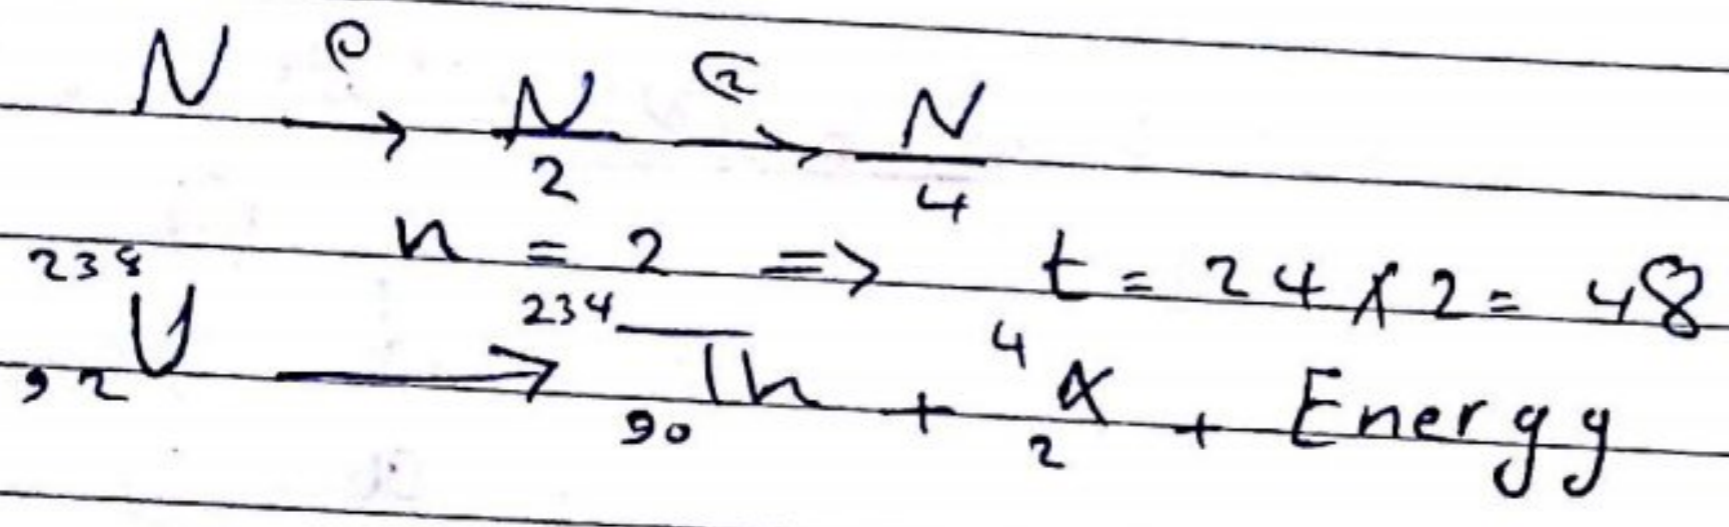 N ① → N/2 ② → N/4
n = 2 => t = 24 × 2 = 48
²³⁸₉₂U → ²³⁴₉₀Th + ⁴₂α + Energy